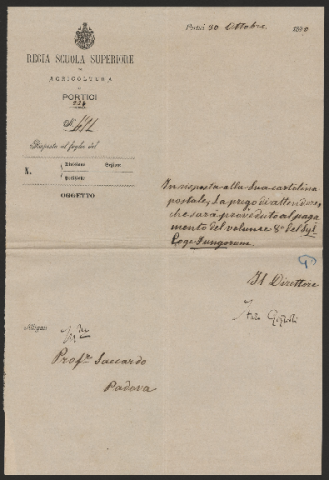 Portici 20 Ottobre 1890
REGIA SCUOLA SUPERIORE
DI
AGRICOLTURA
IN
PORTICI
N.
Risposta al foglio del
N.
Divisione Sezione
OGGETTO
In risposta alla Sua cartolina
postale, La prego di attendere,
che sarà proveduto al paga
mento del volume 8º del Syl
loge Fungorum.
Il Direttore
Allegati
Profre Saccardo
Padova